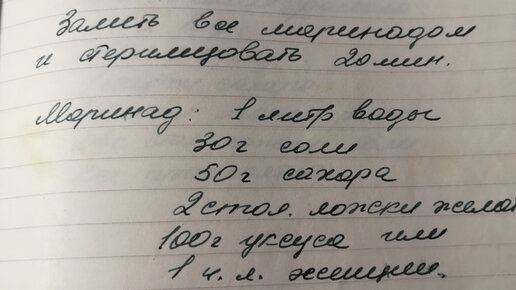 Залить все маринадом
и стерилизовать 20 мин.
Маринад: 1 литр воды
30г соли
50г сахара
2 стол. ложки жела
100г уксуса или
1 ч. л.